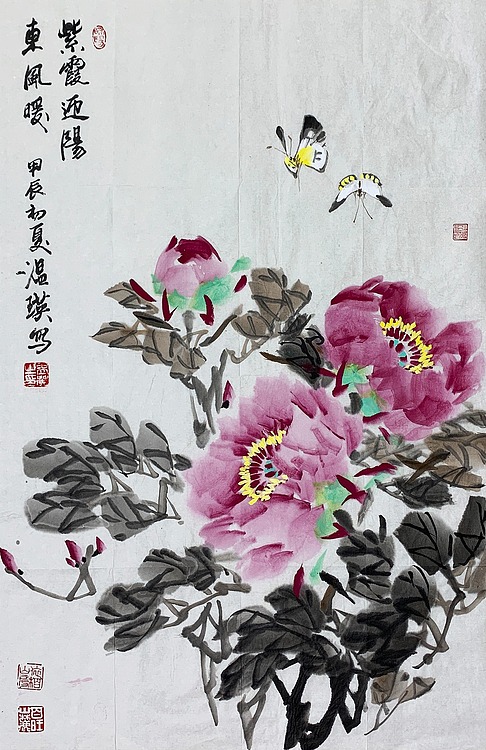 紫霞迎陽
東風暖 甲辰初夏溫瑛写